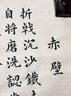 赤壁
折戟沉沙鐵
自將磨洗認